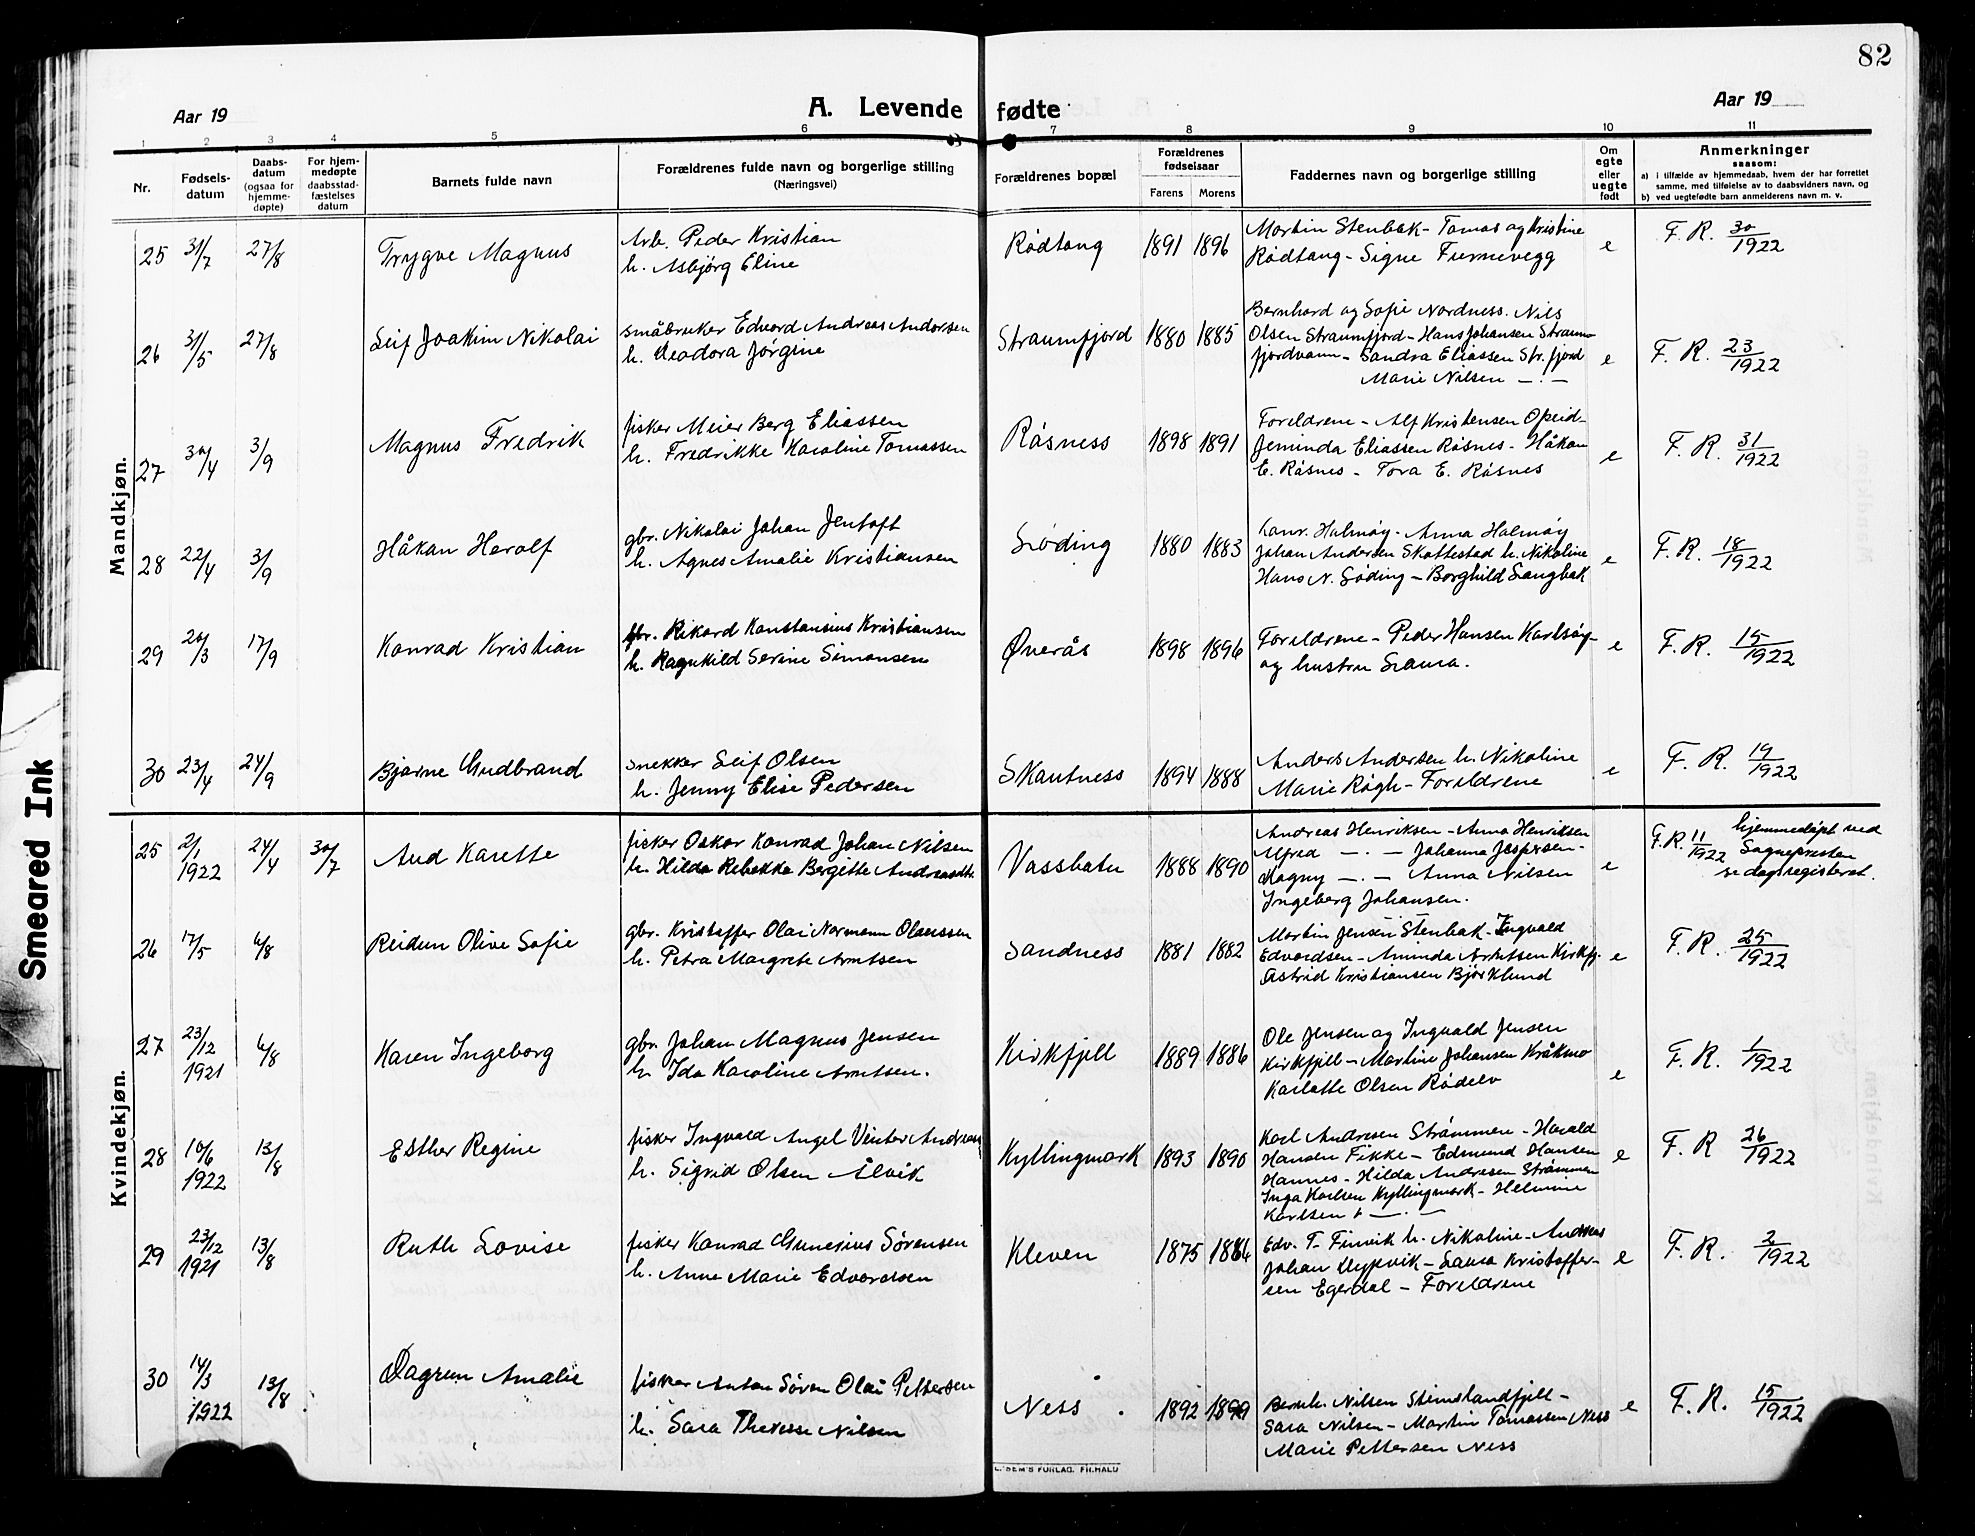 82
Aar 19
A. Levende fødte
Aar 19
1 2 3 4 5 6 7 8 9 10 11
Nr.
Fødsels-
datum
Daabs-
datum
(ogsaa for
hjemme-
døpte)
For hjem-
medøpte
daabsstad-
fæstelses
datum
Barnets fulde navn
Forældrenes fulde navn og borgerlige stilling
(Næringsvei)
Forældrenes bopæl
Forældrenes
fødselsaar
Farens Morens
Faddernes navn og borgerlige stilling
Om
egte
eller
uegte
født
Anmerkninger
saasom:
a) i tilfælde av hjemmedaab, hvem der har forrettet
samme, med tilføielse av to daabsvidners navn, og
b) ved uegtefødte barn anmelderens navn m. v.
Mandkjøn.
25 31/7 27/8 Trygve Magnus
Arb. Peder Kristian
h. Asbjörg Eline
Rödtang 1891 1896
Martin Stenbak - Tomas og Kristine
Rödtang - Signe Furnevegg
e F. R. 30/1922
26 31/5 27/8 Leif Joakim Nikolai
småbruker Edvard Andreas Andorsen
h. Teodora Jörgine
Straumfjord 1880 1885
Bernhard og Sofie Nordness. Nils
Olsen Straumfjord - Hans Johansen Straum-
fjordvann - Sandra Eliassen Str. fjord
Marie Nilsen - . -
e F. R. 23/1922
27 30/4 3/9 Magnus Fredrik
fisker Meier Berg Eliassen
h. Fredrikke Karoline Tomassen
Råsness 1898 1891
Foreldrene - Alf Kristensen Opeid-
Jeminda Eliassen Råsnes - Håkon
E. Råsnes - Tora E. Råsnes
e F. R. 31/1922
28 22/4 3/9 Håkan Harolf
gbr. Nikolai Johan Jentoft
h. Agnes Amalie Kristiansen
Söding 1880 1883
Laur. Halmöy - Anna Halmöy
Johan Andersen Skottestad h. Nikoline
Hans N. Söding - Borghild Langbak
e F. R. 18/1922
29 20/3 17/9 Konrad Kristian
gbr. Rikard Konstansius Kristiansen
h. Ragnhild Serine Simonsen
Øverås 1898 1896
Foreldrene - Peder Hansen Karlsöy-
og hustru Laura.
e F. R. 15/1922
30 23/4 24/9 Bjarne Gudbrand
snekker Leif Olsen
h. Jenny Elise Pedersen
Skautness 1894 1888
Anders Andersen h. Nikoline
Marie Rögh - Foreldrene
e F. R. 19/1922
Kvindekjøn.
25 2/1 1922 24/4 30/7 Aud Karette
fisker Oskar Konrad Johan Nilsen
h. Hilda Rebekka Bergitte Andreasdtr.
Vassbatn 1888 1890
Andreas Henriksen - Anna Henriksen
Alfred - . - Johanna Jespersen-
Magny - . - Anna Nilsen
Ingeborg Johansen.
e F. R. 11/1922 hjemmedöpt ved
Sognepresten
se dagregisteret.
26 17/5 6/8 Reidun Olive Sofie
gbr. Kristoffer Olai Normann Olaussen
h. Petra Margrete Arntsen
Sandness 1881 1882
Martin Jensen Stenbak - Ingvald
Edvardsen - Aminda Arntsen Kirkfj.
Astrid Kristiansen Björklund
e F. R. 25/1922
27 23/12 1921 6/8 Karen Ingeborg
gbr. Johan Magnus Jensen
h. Ida Karoline Arntsen.
Kirkfjell 1889 1886
Ole Jensen og Ingvald Jensen
Kirkfjell - Martine Johansen Kråkmo
Karlotte Olsen Rödelv
e F. R. 1/1922
28 10/6 1922 13/8 Esther Regine
fisker Ingvald Angel Vinter Andreassen
h. Sigrid Olsen Ålvik
Kyllingmark 1893 1890
Karl Andresen Strömmen - Harald
Hansen Fikke - Edmund Hansen
Hannes - Hilda Andresen Strömmen
Inga Karlsen Kyllingmark - Helmine
Karlsen - . -
e F. R 26/1922
29 23/12 1921 13/8 Ruth Lovise
fisker Konrad Gunerius Sörensen
h. Anne Marie Edvardsen
Kleven 1875 1884
Edv. T. Finvik h. Nikoline - Andreas
Johan Dypvik - Laura Kristoffer-
sen Egerdal - Foreldrene
e F. R. 2/1922
30 14/3 1922 13/8 Dagrun Amalie
fisker Anton Sören Olai Pettersen
h. Sara Therese Nilsen
Ness 1892 1899
Bernh. Nilsen Steinslandfjell -
Sara Nilsen - Martin Tomassen Ness
Marie Pettersen Ness
e F. R. 15/1922
SEM'S FORLAG. FR.HALD
Smeared Ink